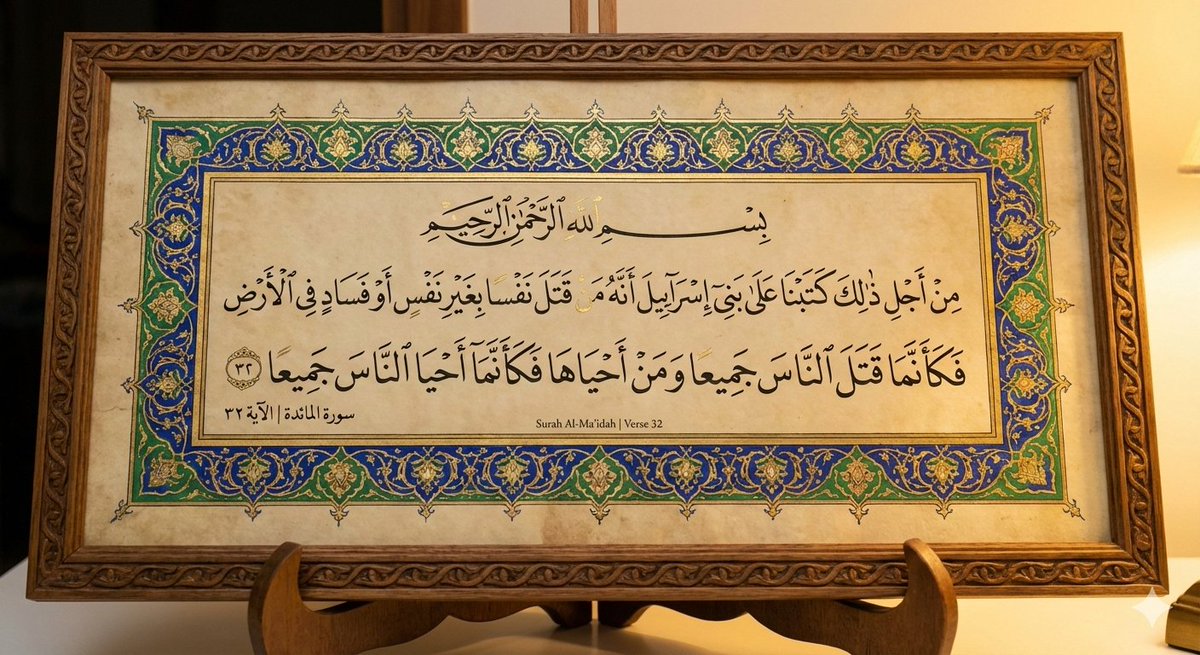 بِسْمِ ٱللَّهِ ٱلرَّحْمَٰنِ ٱلرَّحِيمِ
مِنْ أَجْلِ ذَٰلِكَ كَتَبْنَا عَلَىٰ بَنِىٓ إِسْرَآءِيلَ أَنَّهُۥ مَنْ قَتَلَ نَفْسًا بِغَيْرِ نَفْسٍ أَوْ فَسَادٍ فِى ٱلْأَرْضِ
فَكَأَنَّمَا قَتَلَ ٱلنَّاسَ جَمِيعًا وَمَنْ أَحْيَاهَا فَكَأَنَّمَآ أَحْيَا ٱلنَّاسَ جَمِيعًا ٣٢
سورة المائدة | الآية ٣٢
Surah Al-Ma'idah | Verse 32